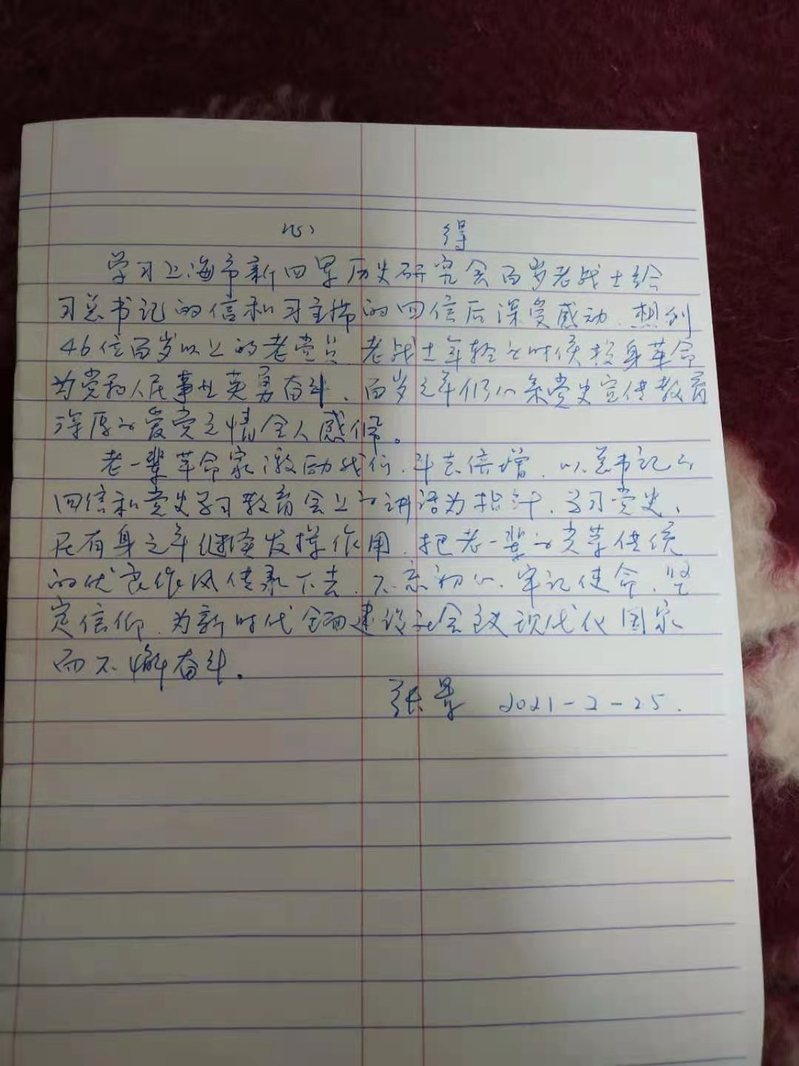 心 得
学习上海市新四军历史研究会百岁老战士给
习总书记的信和习主席的回信后深受感动、想到
46位百岁以上的老党员、老战士年轻之时候投身革命
为党和人民事业英勇奋斗、百岁之年仍心系党史宣传教育
深厚的爱党之情令人感佩。
老一辈革命家激励我们、斗志倍增、以总书记的
回信和党史学习教育会上的讲话为指针、学习党史、
在有身之年继续发挥作用、把老一辈的 传统
的优良作风传承下去、不忘初心、牢记使命、坚
定信仰、为新时代全面建设社会主义现代化国家
而不懈奋斗。
张 2021-2-25.